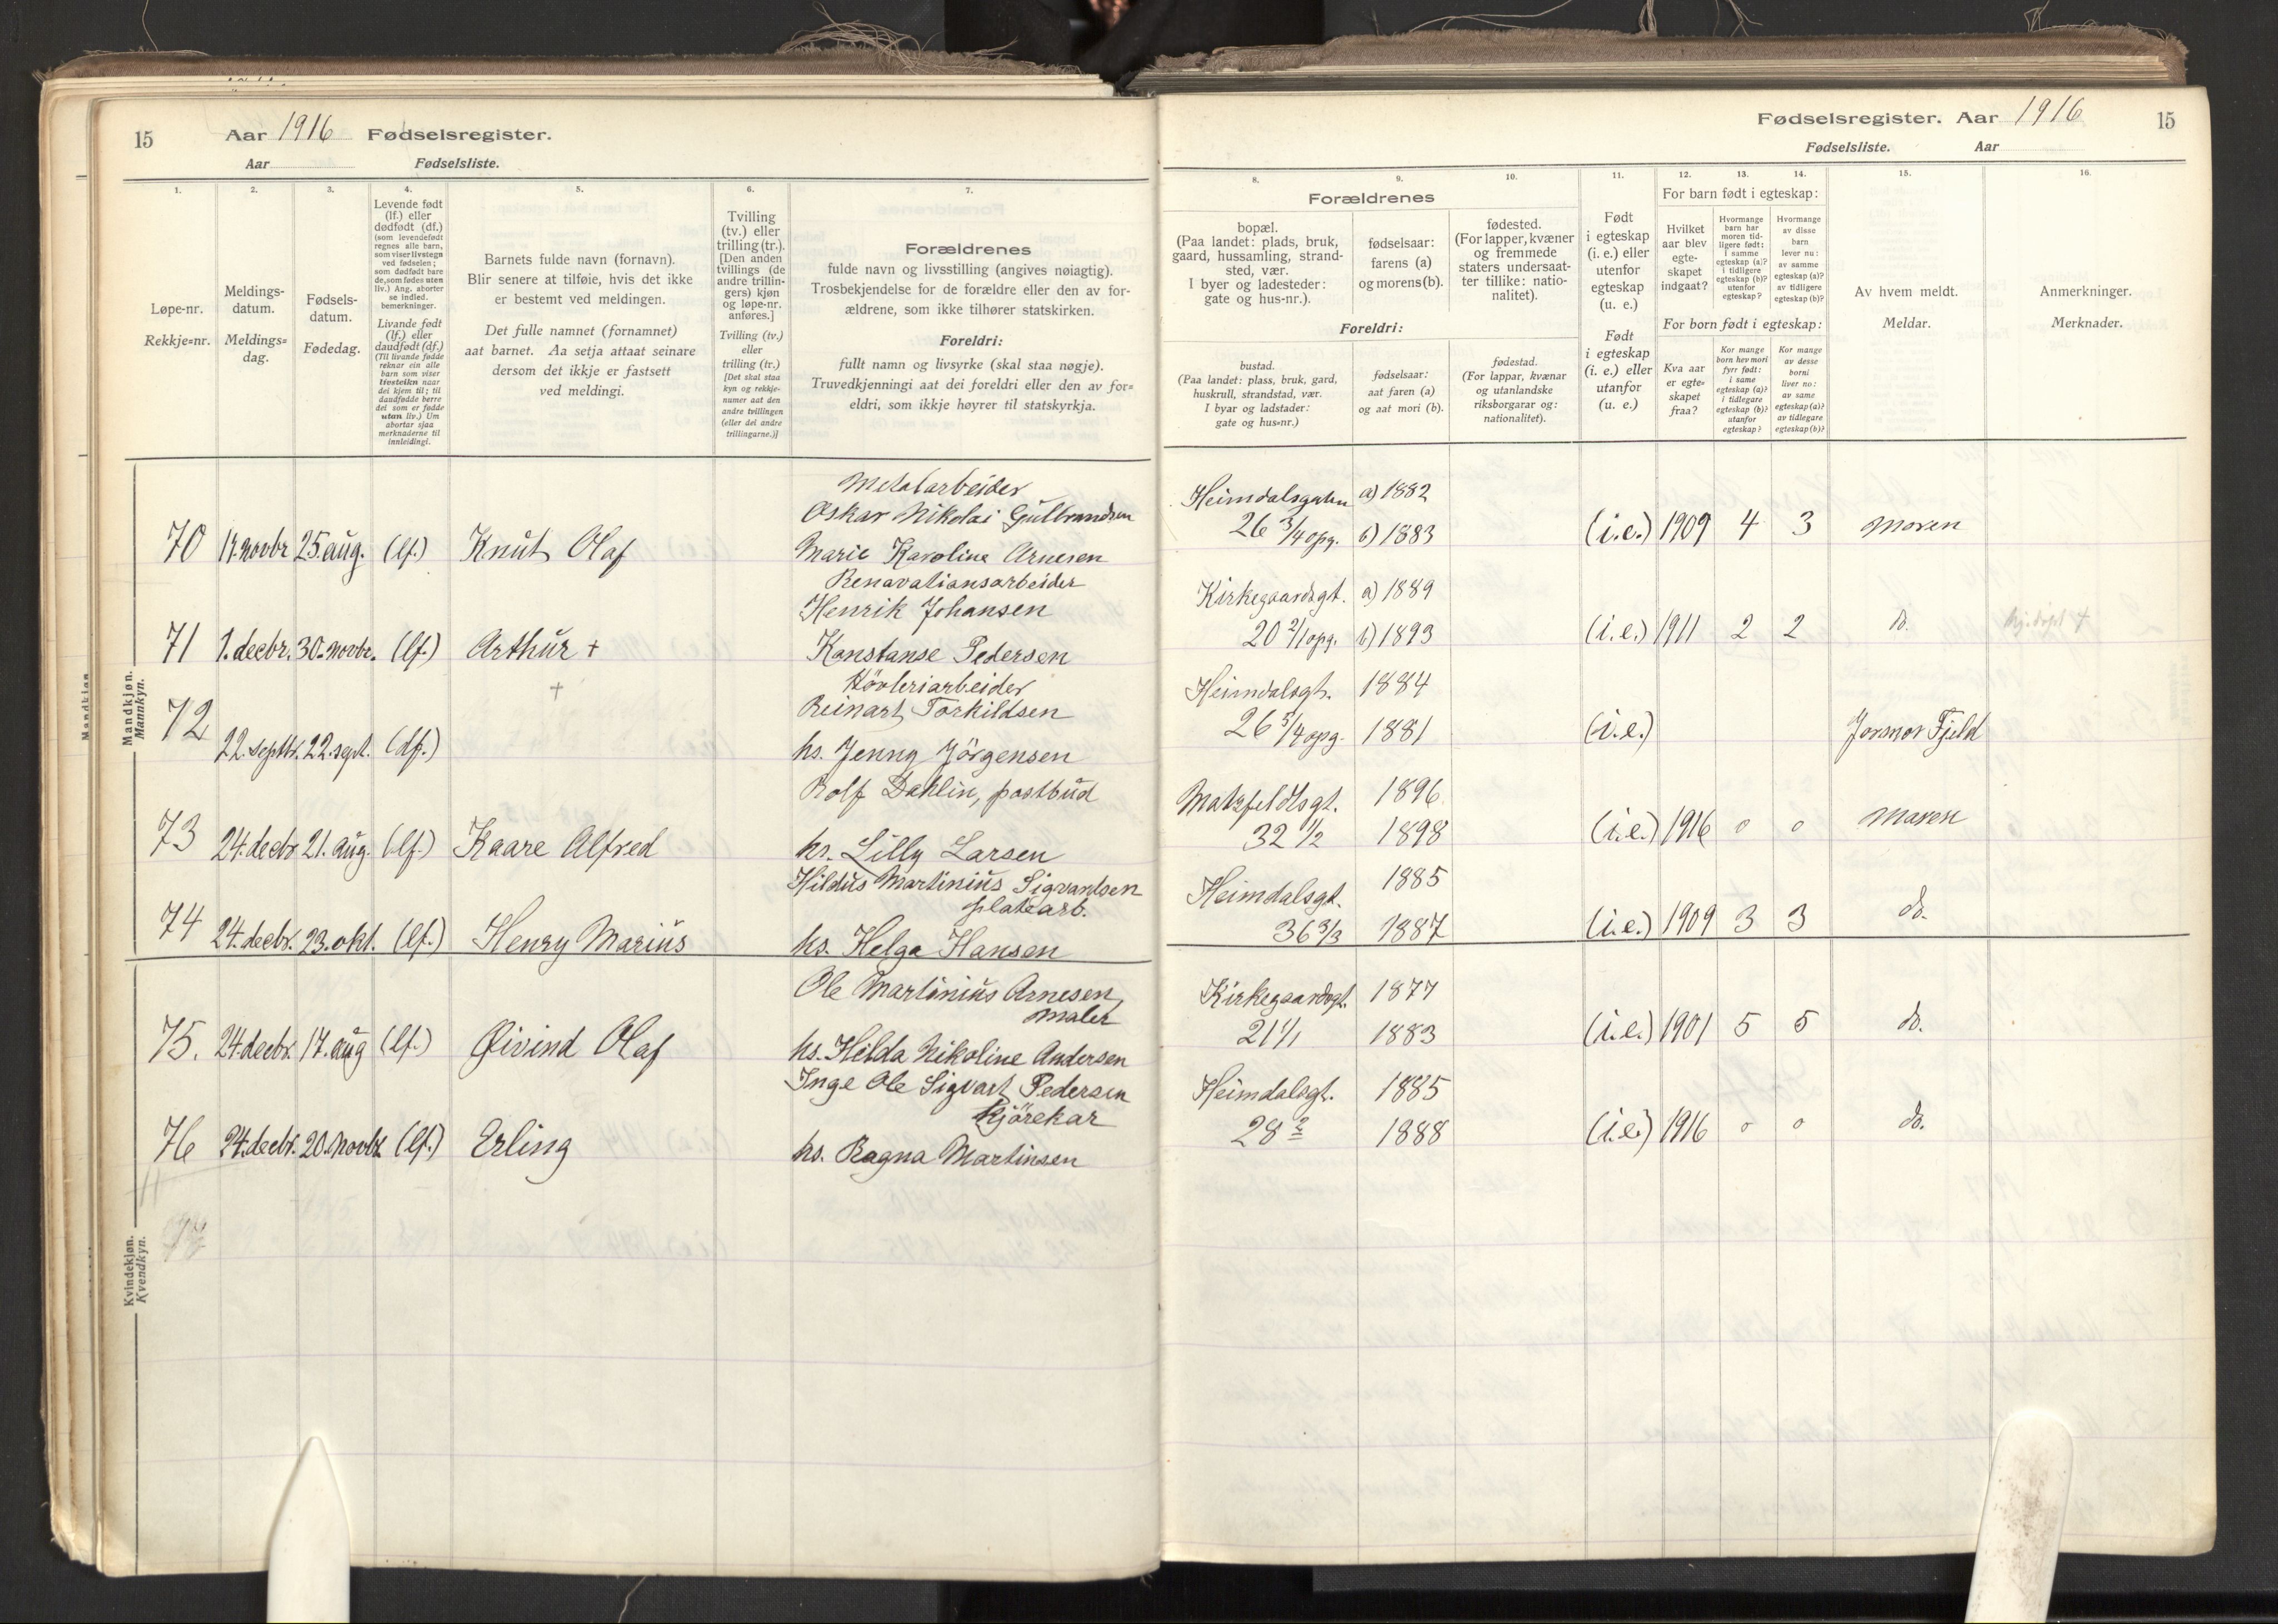 15 Aar 1916 Fødselsregister.
Aar Fødselsliste.
1. 2. 3. 4. 5. 6. 7.
Løpe-nr.
Rekkje=nr.
Meldings-
datum.
Meldings=
dag.
Fødsels-
datum.
Fødedag.
Levende født
(lf.) eller
dødfødt (df.)
(som levendefødt
regnes alle barn,
som viser livstegn
ved fødselen;
som dødfødt bare
de, som fødes uten
liv.) Ang. aborter
se indled.
bemerkninger.
Livande født
(lf.) eller
daudfødt (df.)
(Til livande fødde
reknar ein alle
barn som viser
livsteikn naar
dei kjem til; til
daudfødde berre
dei som er fødde
utan liv.) Um
abortar sjaa
merknaderne til
innleidingi.
Barnets fulde navn (fornavn).
Blir senere at tilføie, hvis det ikke
er bestemt ved meldingen.
Det fulle namnet (fornamnet)
aat barnet. Aa setja attaat seinare
dersom det ikkje er fastsett
ved meldingi.
Tvilling
(tv.) eller
trilling (tr.).
[Den anden
tvillings (de
andre trillin-
gers) kjøn
og løpe-nr.
anføres.]
Tvilling (tv.)
eller
trilling (tr.)
[Det skal staa
kyn og rekkje-
numer aat den
andre tvillingen
(eller dei andre
trillingarne.)]
Forældrenes
fulde navn og livsstilling (angives nøiagtig).
Trosbekjendelse for de forældre eller den av for-
ældrene, som ikke tilhører statskirken.
Foreldri:
fullt namn og livsyrke (skal staa nøgje).
Truvedkjenningi aat dei foreldri eller den av for=
eldri, som ikkje høyrer til statskyrkja.
Mandkjøn.
Mannkyn.
Metalarbeider
Oskar Nikolai Gulbrandsen
70 17. novbr 25. aug. (lf.) Knut Olaf Marie Karoline Arnesen
Renovationsarbeider
Henrik Johansen
71 1. decbr. 30. novbr. (lf.) Arthur + Konstanse Pedersen
+ Høvleriarbeider
72 Reinart Torkildsen
22. septbr. 22. sept. (df.) hs. Jenny Jörgensen
Rolf Dahlin, postbud
73 24. decbr 21. aug. (lf.) Kaare Alfred hs. Lilly Larsen
Hildus Martinius Sigvartsen
platearb.
74 24. decbr. 23. okt. (lf.) Henry Marius hs. Helga Hansen
Ole Martinius Arnesen,
maler
75. 24. decbr. 17. aug (lf.) Øivind Olaf hs. Hilda Nikoline Andersen
Inge Ole Sigvart Pedersen
Kjörekar
76 24. decbr. 20. novbr (lf.) Erling hs. Ragna Martinsen
77
Kvindekjøn.
Kvendkyn.
Fødselsregister. Aar 1916 15
Fødselsliste. Aar
8. 9. 10. 11. 12. 13. 14. 15. 16.
Forældrenes
bopæl.
(Paa landet: plads, bruk,
gaard, hussamling, strand-
sted, vær.
I byer og ladesteder:
gate og hus-nr.).
fødselsaar:
farens (a)
og morens (b).
fødested.
(For lapper, kvæner
og fremmede
staters undersaat-
ter tillike: natio-
nalitet).
Foreldri:
bustad.
(Paa landet: plass, bruk, gard,
huskrull, strandstad, vær.
I byar og ladstader:
gate og hus=nr.)
fødselsaar:
aat faren (a)
og aat mori (b).
fødestad.
(For lappar, kvænar
og utanlandske
riksborgarar og:
nationalitet).
Født
i egteskap
(i. e.) eller
utenfor
egteskap
(u. e.)
Født
i egteskap
(i. e.) eller
utanfor
(u. e.)
For barn født i egteskap:
Hvilket
aar blev
egte-
skapet
indgaat?
Hvormange
barn har
moren tid-
ligere født:
i samme
egteskap (a)?
i tidligere
egteskap (b)?
utenfor
egteskap?
Hvormange
av disse
barn
lever nu:
av samme
egteskap (a)?
av tidligere
egteskap (b)?
For born født i egteskap:
Kva aar
er egte-
skapet
fraa?
Kor mange
born hev mori
fyrr født:
i same
egteskap (a)?
i tidlegare
egteskap (b)?
utanfor
egteskap?
Kor mange
av desse
borni
liver no:
av same
egteskap (a)?
av tidlegare
egteskap (b)?
Av hvem meldt.
Meldar.
Anmerkninger.
Merknader.
Heimdalsgaten a) 1882
26 3/4 opg. b) 1883 (i.e.) 1909 4 3 Moren
Kirkegaardsgt. a) 1889
20 2/1 opg. b) 1893 (i.e.) 1911 2 2 do.
Heimdalsgt. 1884
26 5/4 opg. 1881 (i.e.) Jormor Fjeld
Motzfeldtsgt. 1896
32 1/2 1898 (i.e.) 1916 0 0 Moren
Heimdalsgt. 1885
36 3/3 1887 (i.e.) 1909 3 3 do.
Kirkegaardsgt. 1877
21 1/1 1883 (i.e.) 1901 5 5 do.
Heimdalsgt. 1885
28 2 1888 (i.e.) 1916 0 0 do.